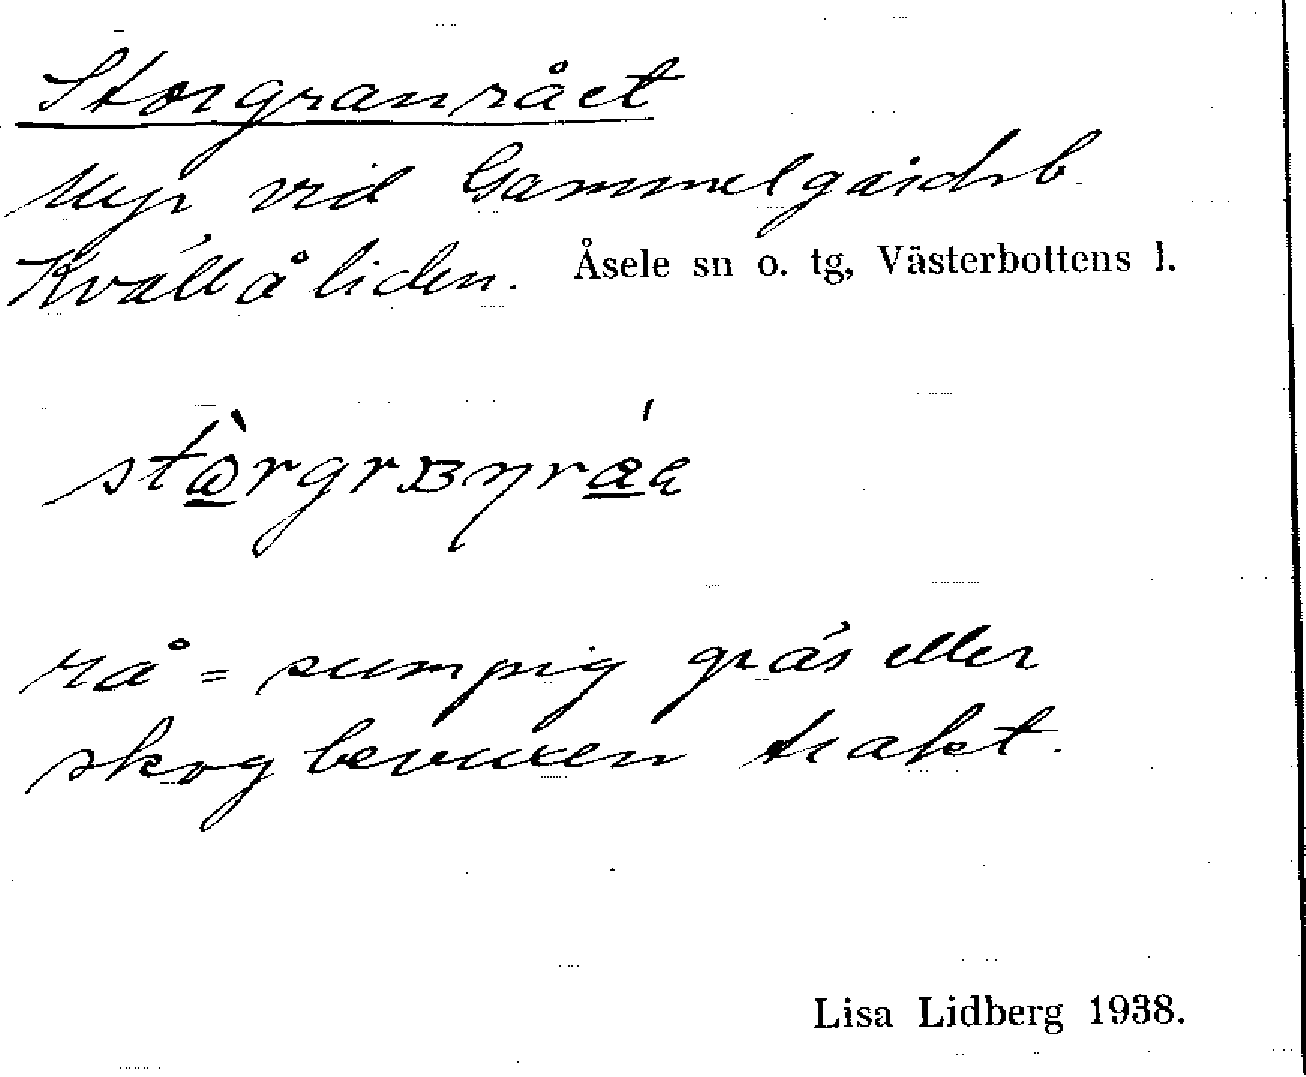 Storgranrået
Myr vid Gammelgårdsb.
Kvällåliden. Åsele sn o. tg, Västerbottens l.
rå = sumpig gräs eller
skogbevuxen trakt.
Lisa Lidberg 1938.